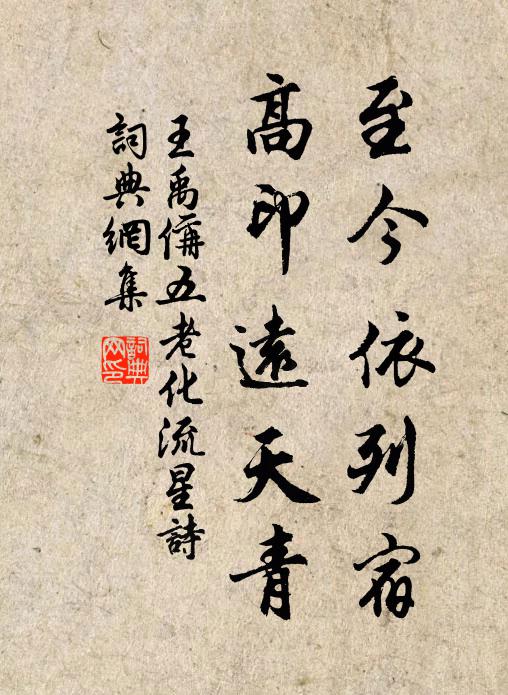 至今依列宿
高印遠天青
王禹偁五老化流星詩
詞典網集
詞典網印